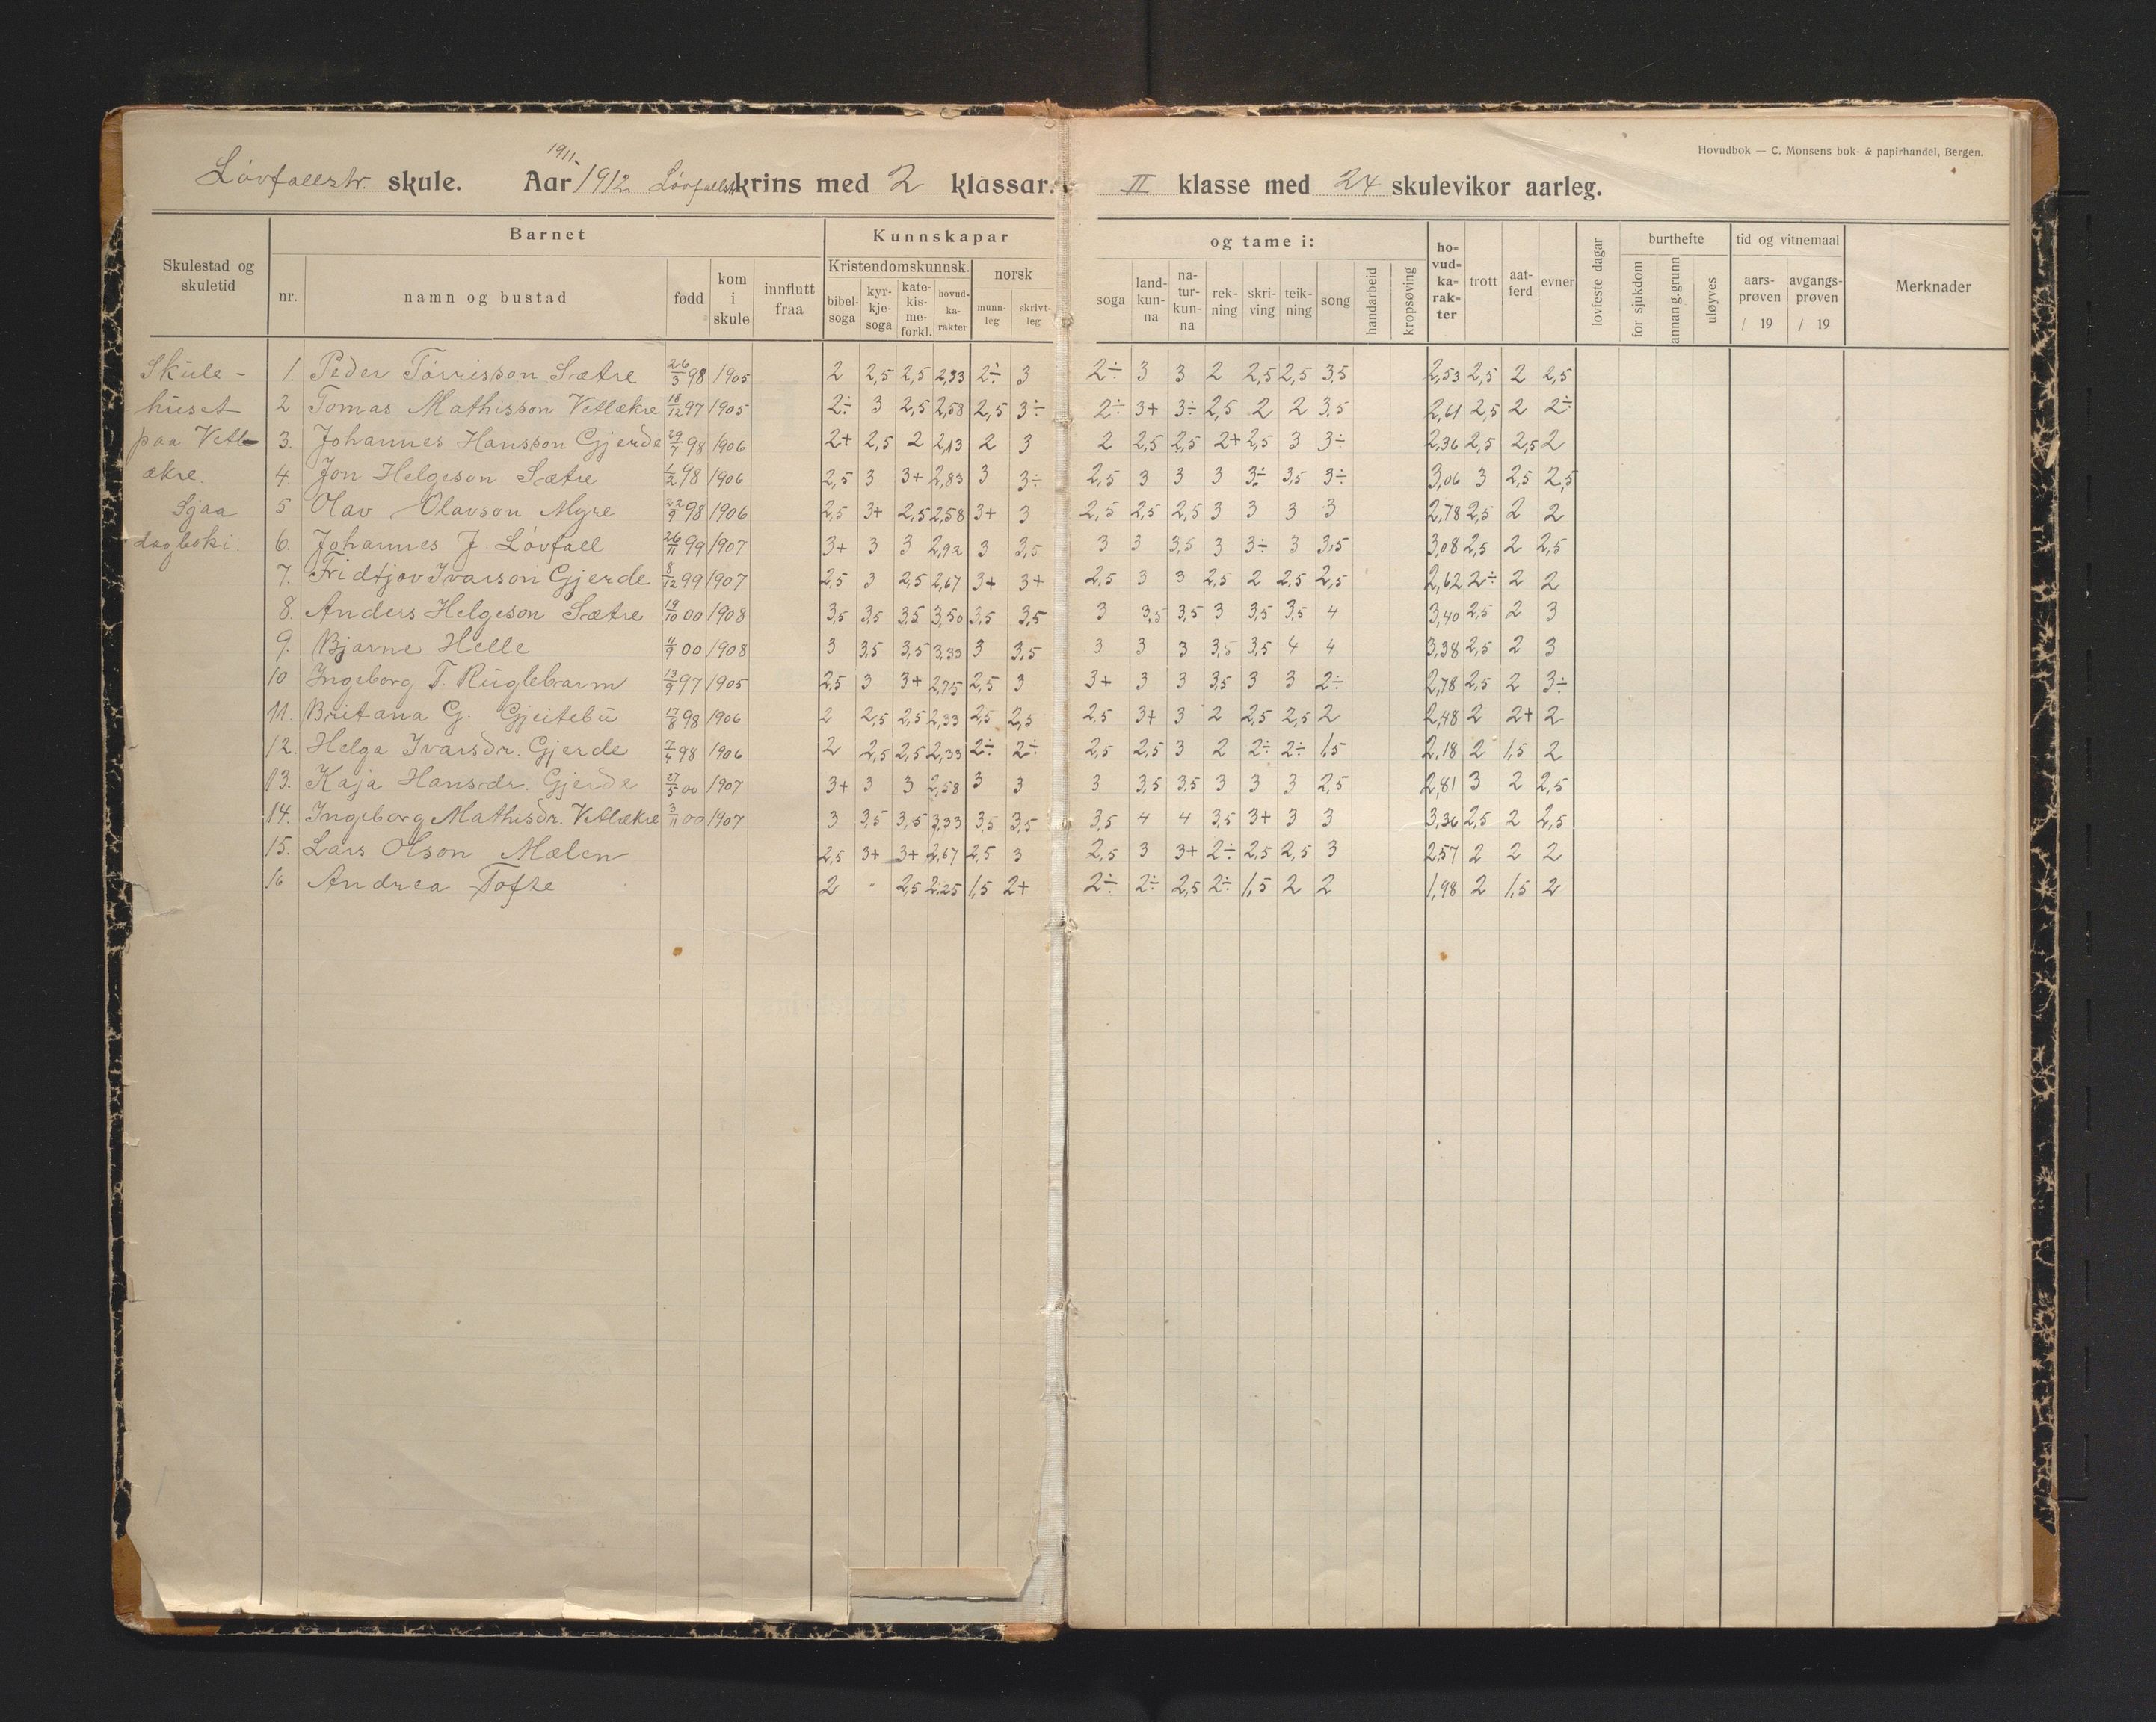 Hovudbok — C. Monsens bok- & papirhandel, Bergen.
1911-
Lövfallstr. skule. Aar 1912 Lövfallstr. krins med 2 klassar. II klasse med 24 skulevikor aarleg.
Skulestad og skuletid
Barnet
nr. namn og bustad född kom i skule innflutt fraa
Kunnskapar og tame i:
Kristendomskunnsk. norsk
bibel-soga kyr-kje-soga kate-kis-me-forkl. hovud-ka-rakter munn-leg skrivt-leg
soga land-kun-na na-tur-kun-na rek-ning skri-ving teik-ning song handarbeid kropsøving
ho-vud-ka-rak-ter trott aat-ferd evner lovfeste dagar
burthefte
for sjukdom annan g. grunn uløyves
tid og vitnemaal
aars-prøven / 19 avgangs-prøven / 19
Merknader
Skule-
huset
paa Vetl-
ækre.
Sjaa
dagboki.
1. Peder Torrisson Sætre 26/3 98 1905 2 2,5 2,5 2,33 2÷ 3 2÷ 3 3 2 2,5 2,5 3,5 2,53 2,5 2 2,5
2 Tomas Mathisson Vetlækre 18/12 97 1905 2÷ 3 2,5 2,58 2,5 3÷ 2÷ 3+ 3÷ 2,5 2 2 3,5 2,61 2,5 2 2÷
3. Johannes Hansson Gjerde 29/7 98 1906 2+ 2,5 2 2,13 2 3 2 2,5 2,5 2+ 2,5 3 3÷ 2,36 2,5 2,5 2
4. Jon Helgeson Sætre 1/2 98 1906 2,5 3 3+ 2,83 3 3÷ 2,5 3 3 3 3÷ 3,5 3÷ 3,06 3 2,5 2,5
5 Olav Olavson Myre 22/9 98 1906 2,5 3+ 2,5 2,58 3+ 3 2,5 2,5 2,5 3 3 3 3 2,78 2,5 2 2
6. Johannes J. Lövfall 26/11 99 1907 3+ 3 3 2,92 3 3,5 3 3 3,5 3 3÷ 3 3,5 3,08 2,5 2 2,5
7. Fridtjov Ivarson Gjerde 8/12 99 1907 2,5 3 2,5 2,67 3+ 3+ 2,5 3 3 2,5 2 2,5 2,5 2,62 2÷ 2 2
8. Anders Helgeson Sætre 19/10 00 1908 3,5 3,5 3,5 3,50 3,5 3,5 3 3,5 3,5 3 3,5 3,5 4 3,40 2,5 2 3
9. Bjarne Helle 11/9 00 1908 3 3,5 3,5 3,33 3 3,5 3 3 3 3,5 3,5 4 4 3,38 2,5 2 3
10 Ingeborg T. Ruglebarm 13/9 97 1905 2,5 3 3+ 2,75 2,5 3 3+ 3 3 3,5 3 3 2÷ 2,78 2,5 2 3÷
11. Britana G. Gjeitebu 17/8 98 1906 2 2,5 2,5 2,33 2,5 2,5 2,5 3+ 3 2 2,5 2,5 2 2,48 2 2+ 2
12. Helga Ivarsdr. Gjerde 7/4 98 1906 2 2,5 2,5 2,33 2÷ 2÷ 2,5 2,5 3 2 2÷ 2÷ 1,5 2,18 2 1,5 2
13. Kaja Hansdr. Gjerde 27/5 00 1907 3+ 3 3 2,58 3 3 3 3,5 3,5 3 3 3 2,5 2,81 3 2 2,5
14. Ingeborg Mathisdr. Vetlækre 3/11 00 1907 3 3,5 3,5 3,33 3,5 3,5 3,5 4 4 3,5 3+ 3 3 3,36 2,5 2 2,5
15. Lars Olson Mælen 2,5 3+ 3+ 2,67 2,5 3 2,5 3 3+ 2÷ 2,5 2,5 3 2,57 2 2 2
16 Andrea Tofte 2 " 2,5 2,25 1,5 2+ 2÷ 2÷ 2,5 2÷ 1,5 2 2 1,98 2 1,5 2